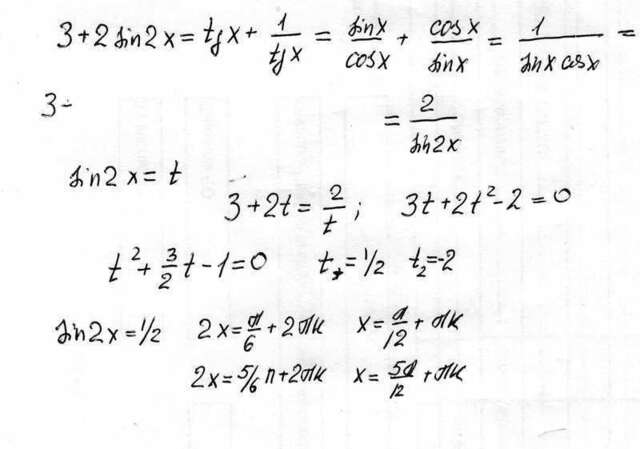 3+2 sin2x = tgx + 1/tgx = sinx/cosx + cosx/sinx = 1/sinx cosx =
3-
= 2/sin2x
sin2x = t
3+2t = 2/t ; 3t+2t²-2=0
t²+3/2t-1=0 t₁=1/2 t₂=-2
sin2x=1/2 2x=π/6+2πk x=π/12+πk
2x=5/6π+2πk x=5π/12+πk